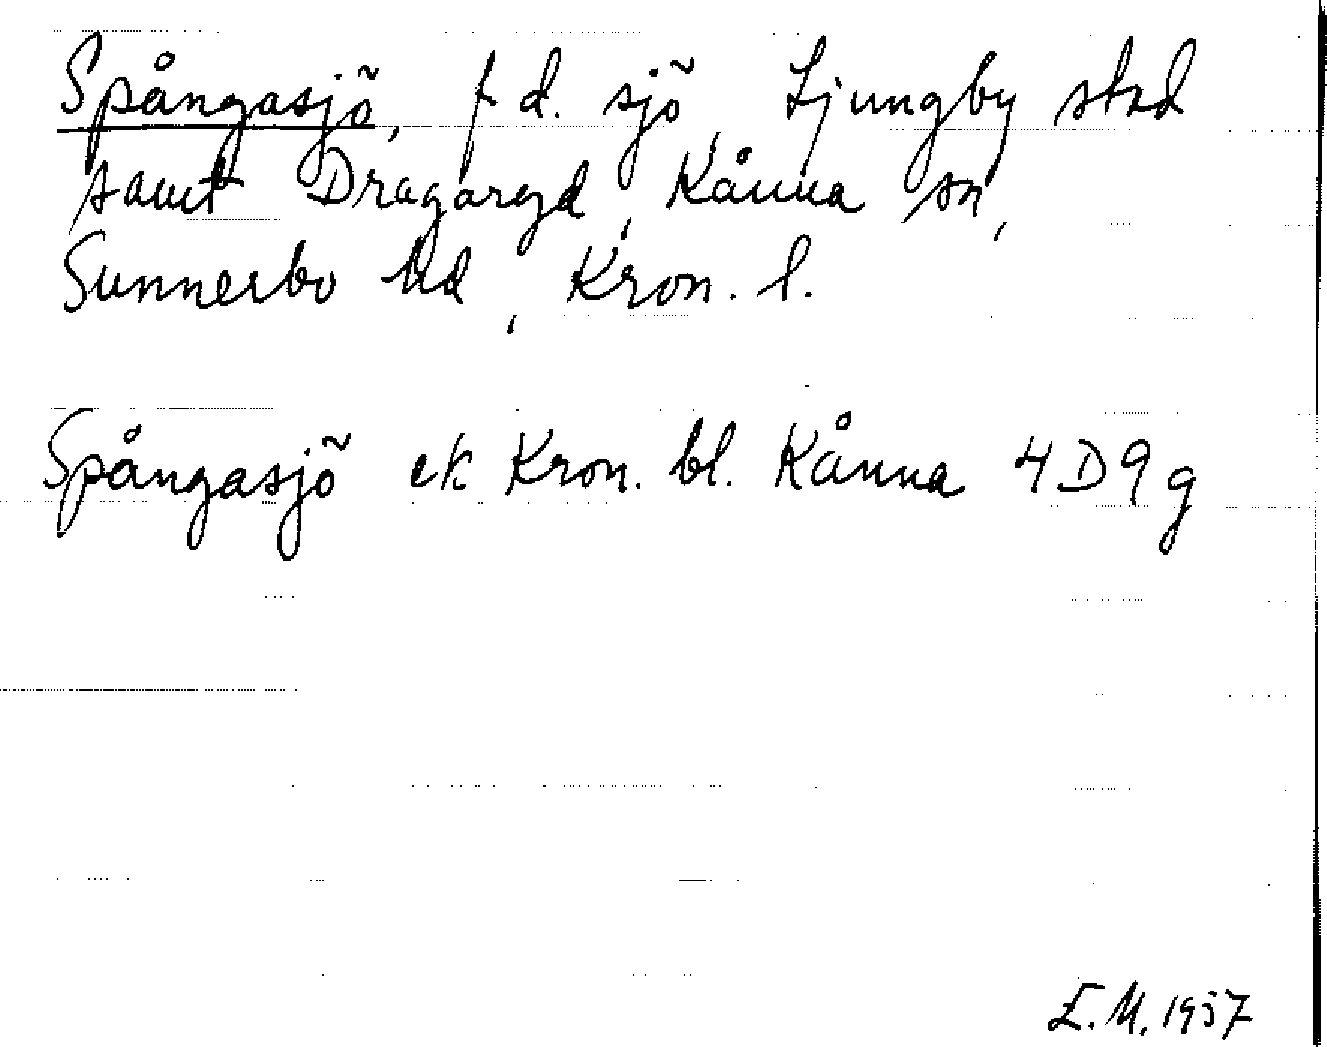 Spångasjö, f d. sjö, Ljungby stad
samt Dragaryd, Kånna sn,
Sunnerbo hd, Kron. l.
Spångasjö ek Kron. bl. Kånna 4D9g
E.M. 1957